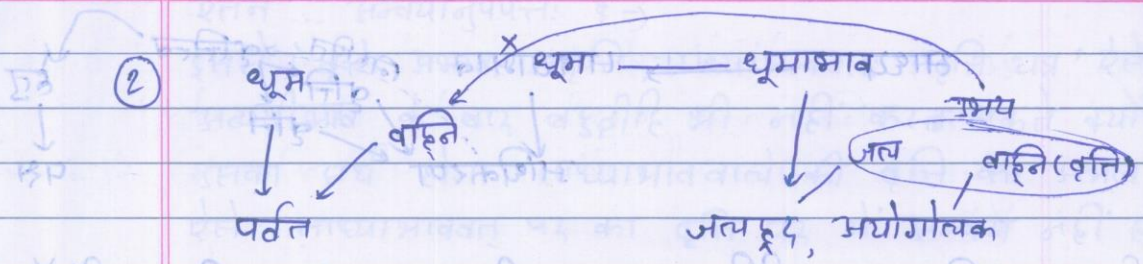 ×
② धूम धूमा धूमाभाव
वह्नि उभय
जल वह्नि (वृत्ति)
पर्वत जल हृद, अयोगोलक